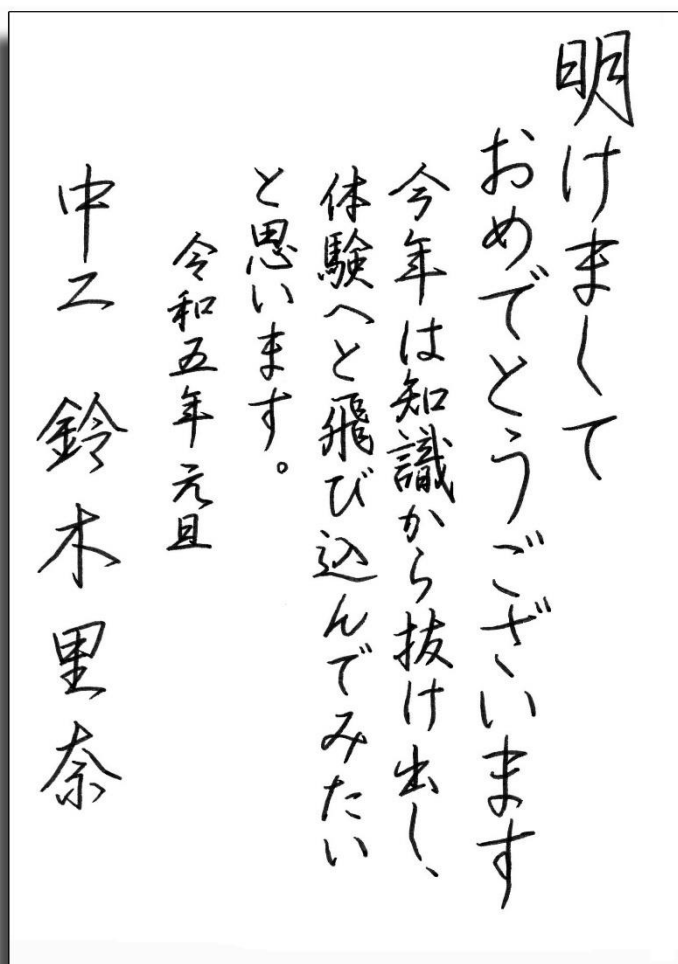 明けまして
おめでとうございます
今年は知識から抜け出し、
体験へと飛び込んでみたい
と思います。
令和五年元旦
中二 鈴木里奈